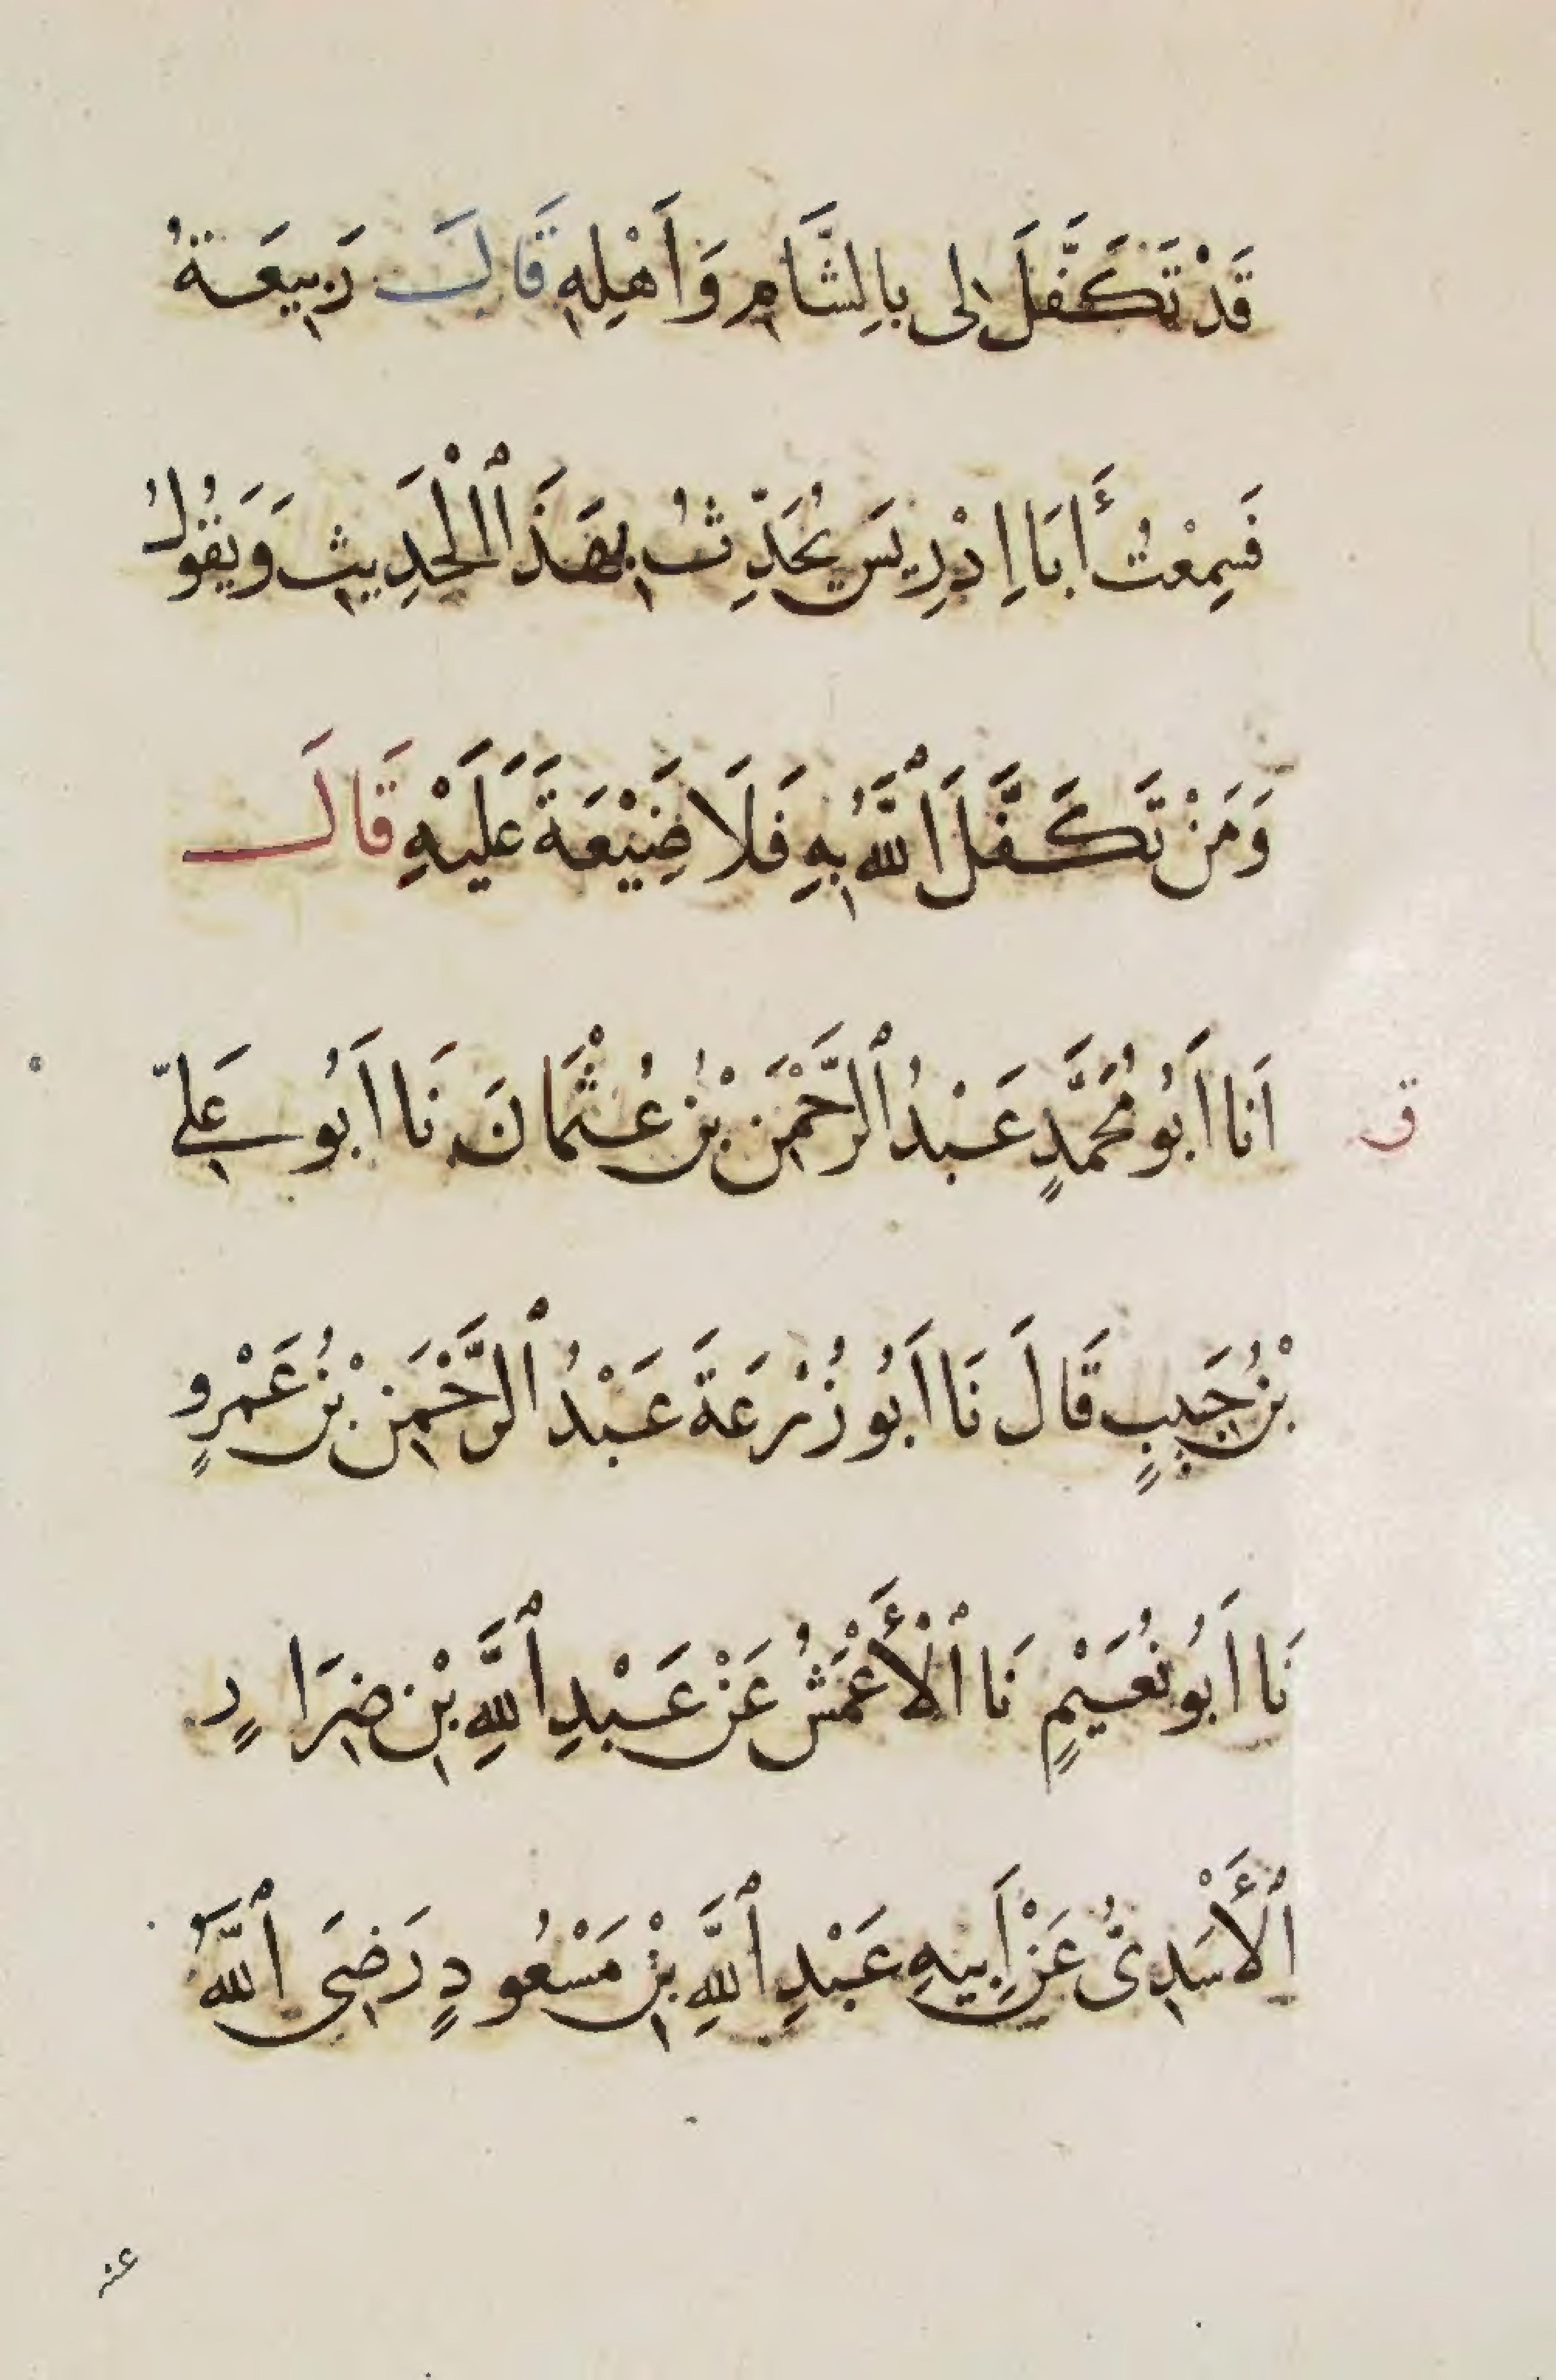 قَدْ تَكَفَّلَ لِى بِالشَّامِ وَاَهْلِهِ قَالَ رَبِيعَةُ
فَسَمِعْتُ أَبَا اِدْرِيسَ يُحَدِّثُ بِهَذَا ٱلْحَدِيثِ وَيَقُولُ
وَمَنْ تَكَفَّلَ ٱللَّهُ بِهِ فَلَا ضَيْعَةَ عَلَيْهِ قَالَ
اَنَا اَبُو مُحَمَّدٍ عَبْدُ ٱلرَّحْمَنِ بْنُ عُثْمَانَ نَا اَبُو عَلِىِّ
ق
بْنُ حَبِيبٍ قَالَ نَا اَبُو زُرْعَةَ عَبْدُ ٱلرَّحْمَنِ بْنُ عَمْرٍو
نَا اَبُو نُعَيْمٍ نَا ٱلْأَعْمَشُ عَنْ عَبْدِ ٱللَّهِ بْنِ ضِرَارٍ
ٱلْأَسْدِىُّ عَنْ اَبِيهِ عَبْدِ ٱللَّهِ بْنِ مَسْعُودٍ رَضِىَ ٱللَّهُ
عنه